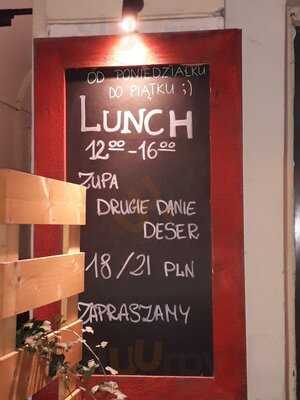 OD PONIEDZIAŁKU
DO PIĄTKU ;)
LUNCH
12⁰⁰-16⁰⁰
ZUPA
DRUGIE DANIE
DESER
18/21 PLN
ZAPRASZAMY